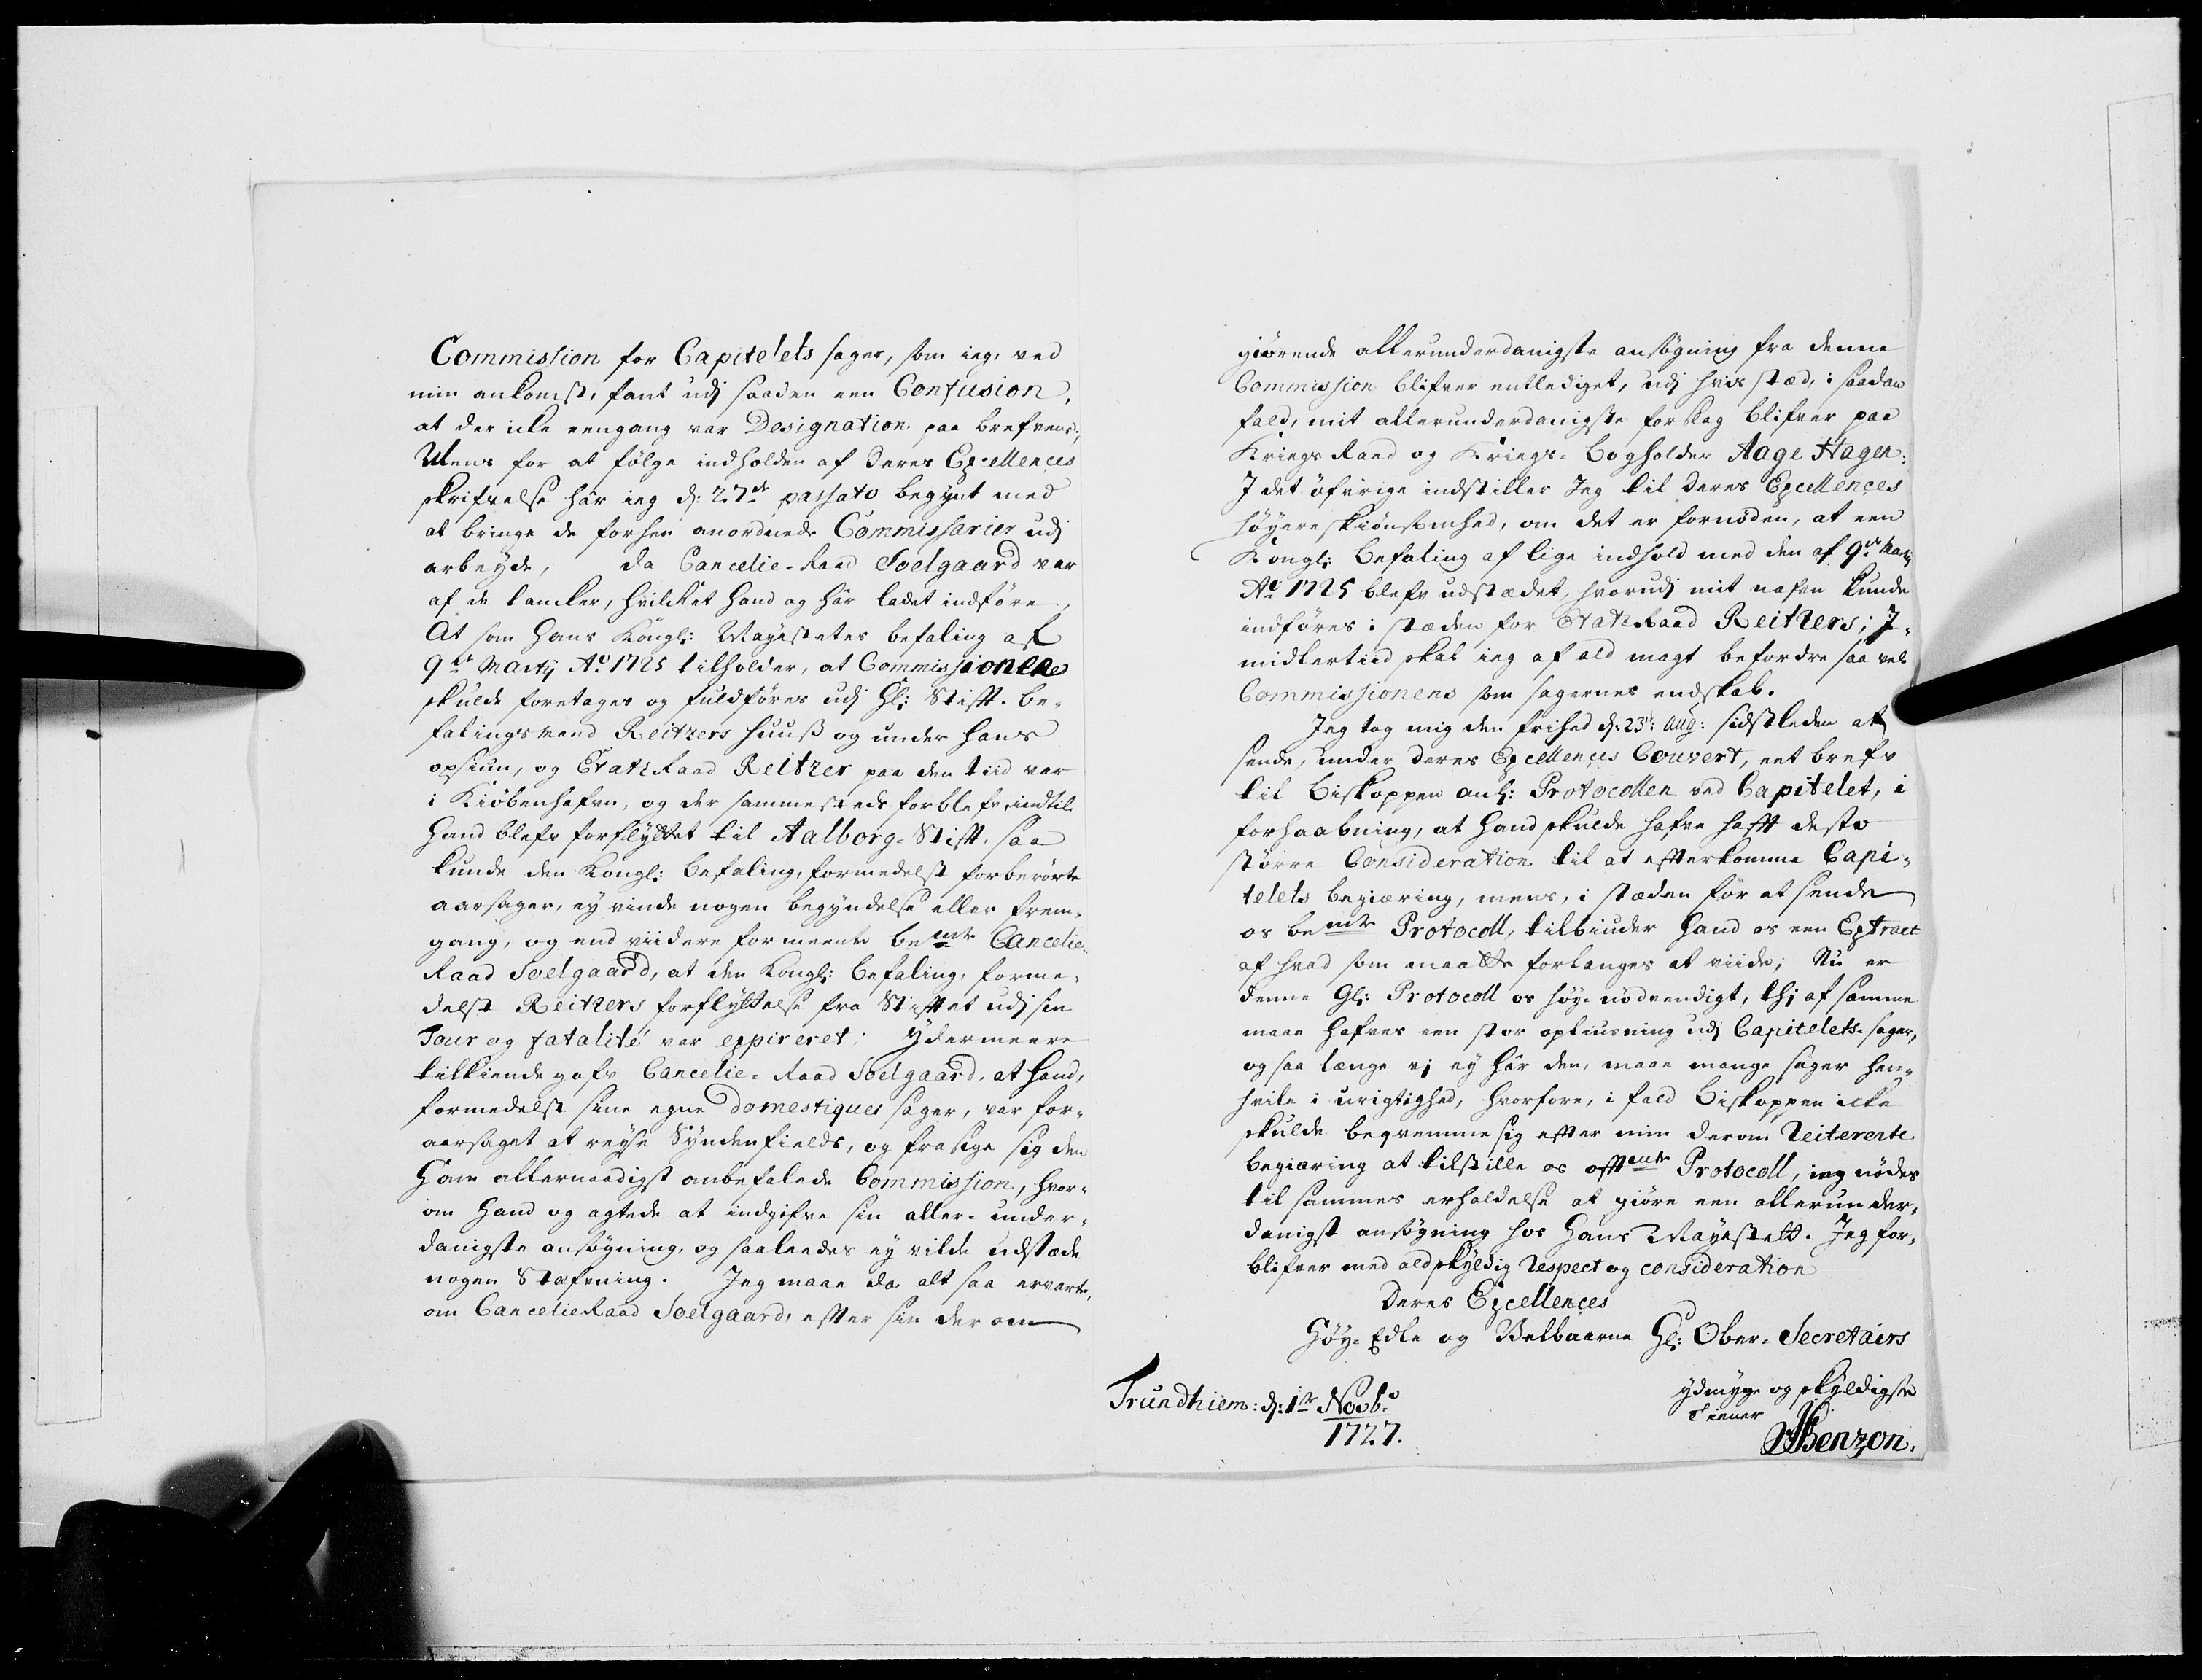 Commission for Capitelets sager, som ieg, ved
min ankomst, fant udj saaden een Confusion,
at der icke eengang var Designation paa brefvene;
Mens for at følge indholden af Deres Excellences
skrifvelse här ieg d: 27de passato begynt med
at bringe de forhen anordnede Commissarier udj
arbeyde, da Cancelie-Raad Soelgaard var
af de tancker, hvilcket hand og här ladet indføre,
At som Hans Kongl: Mayestetes befaling af
9de Martij Ao 1725 tilholder, at Commissionene
skulde foretages og fuldføres udj Hl: Stift-be-
falingsmand Reitzers huuß og under hans
opsiun, og Etatz Raad Reitzer paa den tiid var
i Kiöbenhafvn, og der sammesteds forblef indtil
Hand blefv forflyttet til Aalborg-Stift, saa
kunde den Kongl: befaling, formedelst forberörte
aarsager, ey vinde nogen begyndelse eller frem-
gang, og end viidere formeente bemte Cancelie-
Raad Soelgaard, at den Kongl: befaling, forme-
delst Reitzers forflyttelse fra Stiftet udj sin
Tour og fatalité var expireret; Ydermeere
tilkiende gafv Cancelie-Raad Soelgaard, at hand,
formedelst sine egne domestiques sager, var for-
aarsaget at reyse Syndenfields, og frasige sig den
Ham allernaadigst anbefalede Commission, hvor-
om Hand og agtede at indgifve sin aller-under-
danigste ansögning, og saaleedes ey vilde udstæde
nogen Stæfvning. Jeg maae da alt saa ervarte,
om CancelieRaad Soelgaard, efter sin der om
giörende allerunderdanigste ansögning fra denne
Commission blifver entlediget, udj hvis stæd, i saadan
fald, mit allerunderdanigste forslag blifver paa
Kriegs Raad og Kriegs-bogholder Aage Hagen:
J det öfvrige indstiller Jeg til Deres Excellences
höyere skiönsomhed, om det er fornöden, at een
Kongl: befaling af lige indhold med den af 9de Martij
Ao 1725 blefv udstædet, hvorudj mit nafvn kunde
indföres i stæden for EtatzRaad Reitzers; J-
midlertiid skal ieg af ald magt befordre saa vel
Commissionens som sagernes endskab.
Jeg tog mig den frihed d: 23de: Aug: sidstleden at
sende, under Deres Excellences Couvert, eet brefv
til Biskoppen anl: Protocollen ved Capitelet, i
forhaabning, at Hand skulde hafve hafft desto
större Consideration til at efterkomme Capi-
telets begiæring, mens, i stæden for at sende
os bemte Protocoll, tilbiuder Hand os een Extract
af hvad som maatte forlanges at viide; Nu er
denne Gl: Protocoll os höy-nödvendigt, thj af samme
maae hafves een stor opliusning udj Capitelets-sager,
og saa længe vj ey här den, maae mange sager hen-
hvile i urigtighed, hvorfore, i fald Biskoppen icke
skulde beqvemme sig efter min derom reitererte
begiæring at tilstille os offtemte Protocoll, ieg nödes
til sammes erholdelse at giöre een allerunder-
danigst ansögning hos Hans Mayestett. Jeg for-
blifver med ald skyldig respect og consideration
Deres Excellences
Höy-Edle og Velbaarne Hl: Ober-Secretairs
ydmyge og skyldigste
Tiener
Trundhiem: d: 1te Novbr
1727.
Benzon.